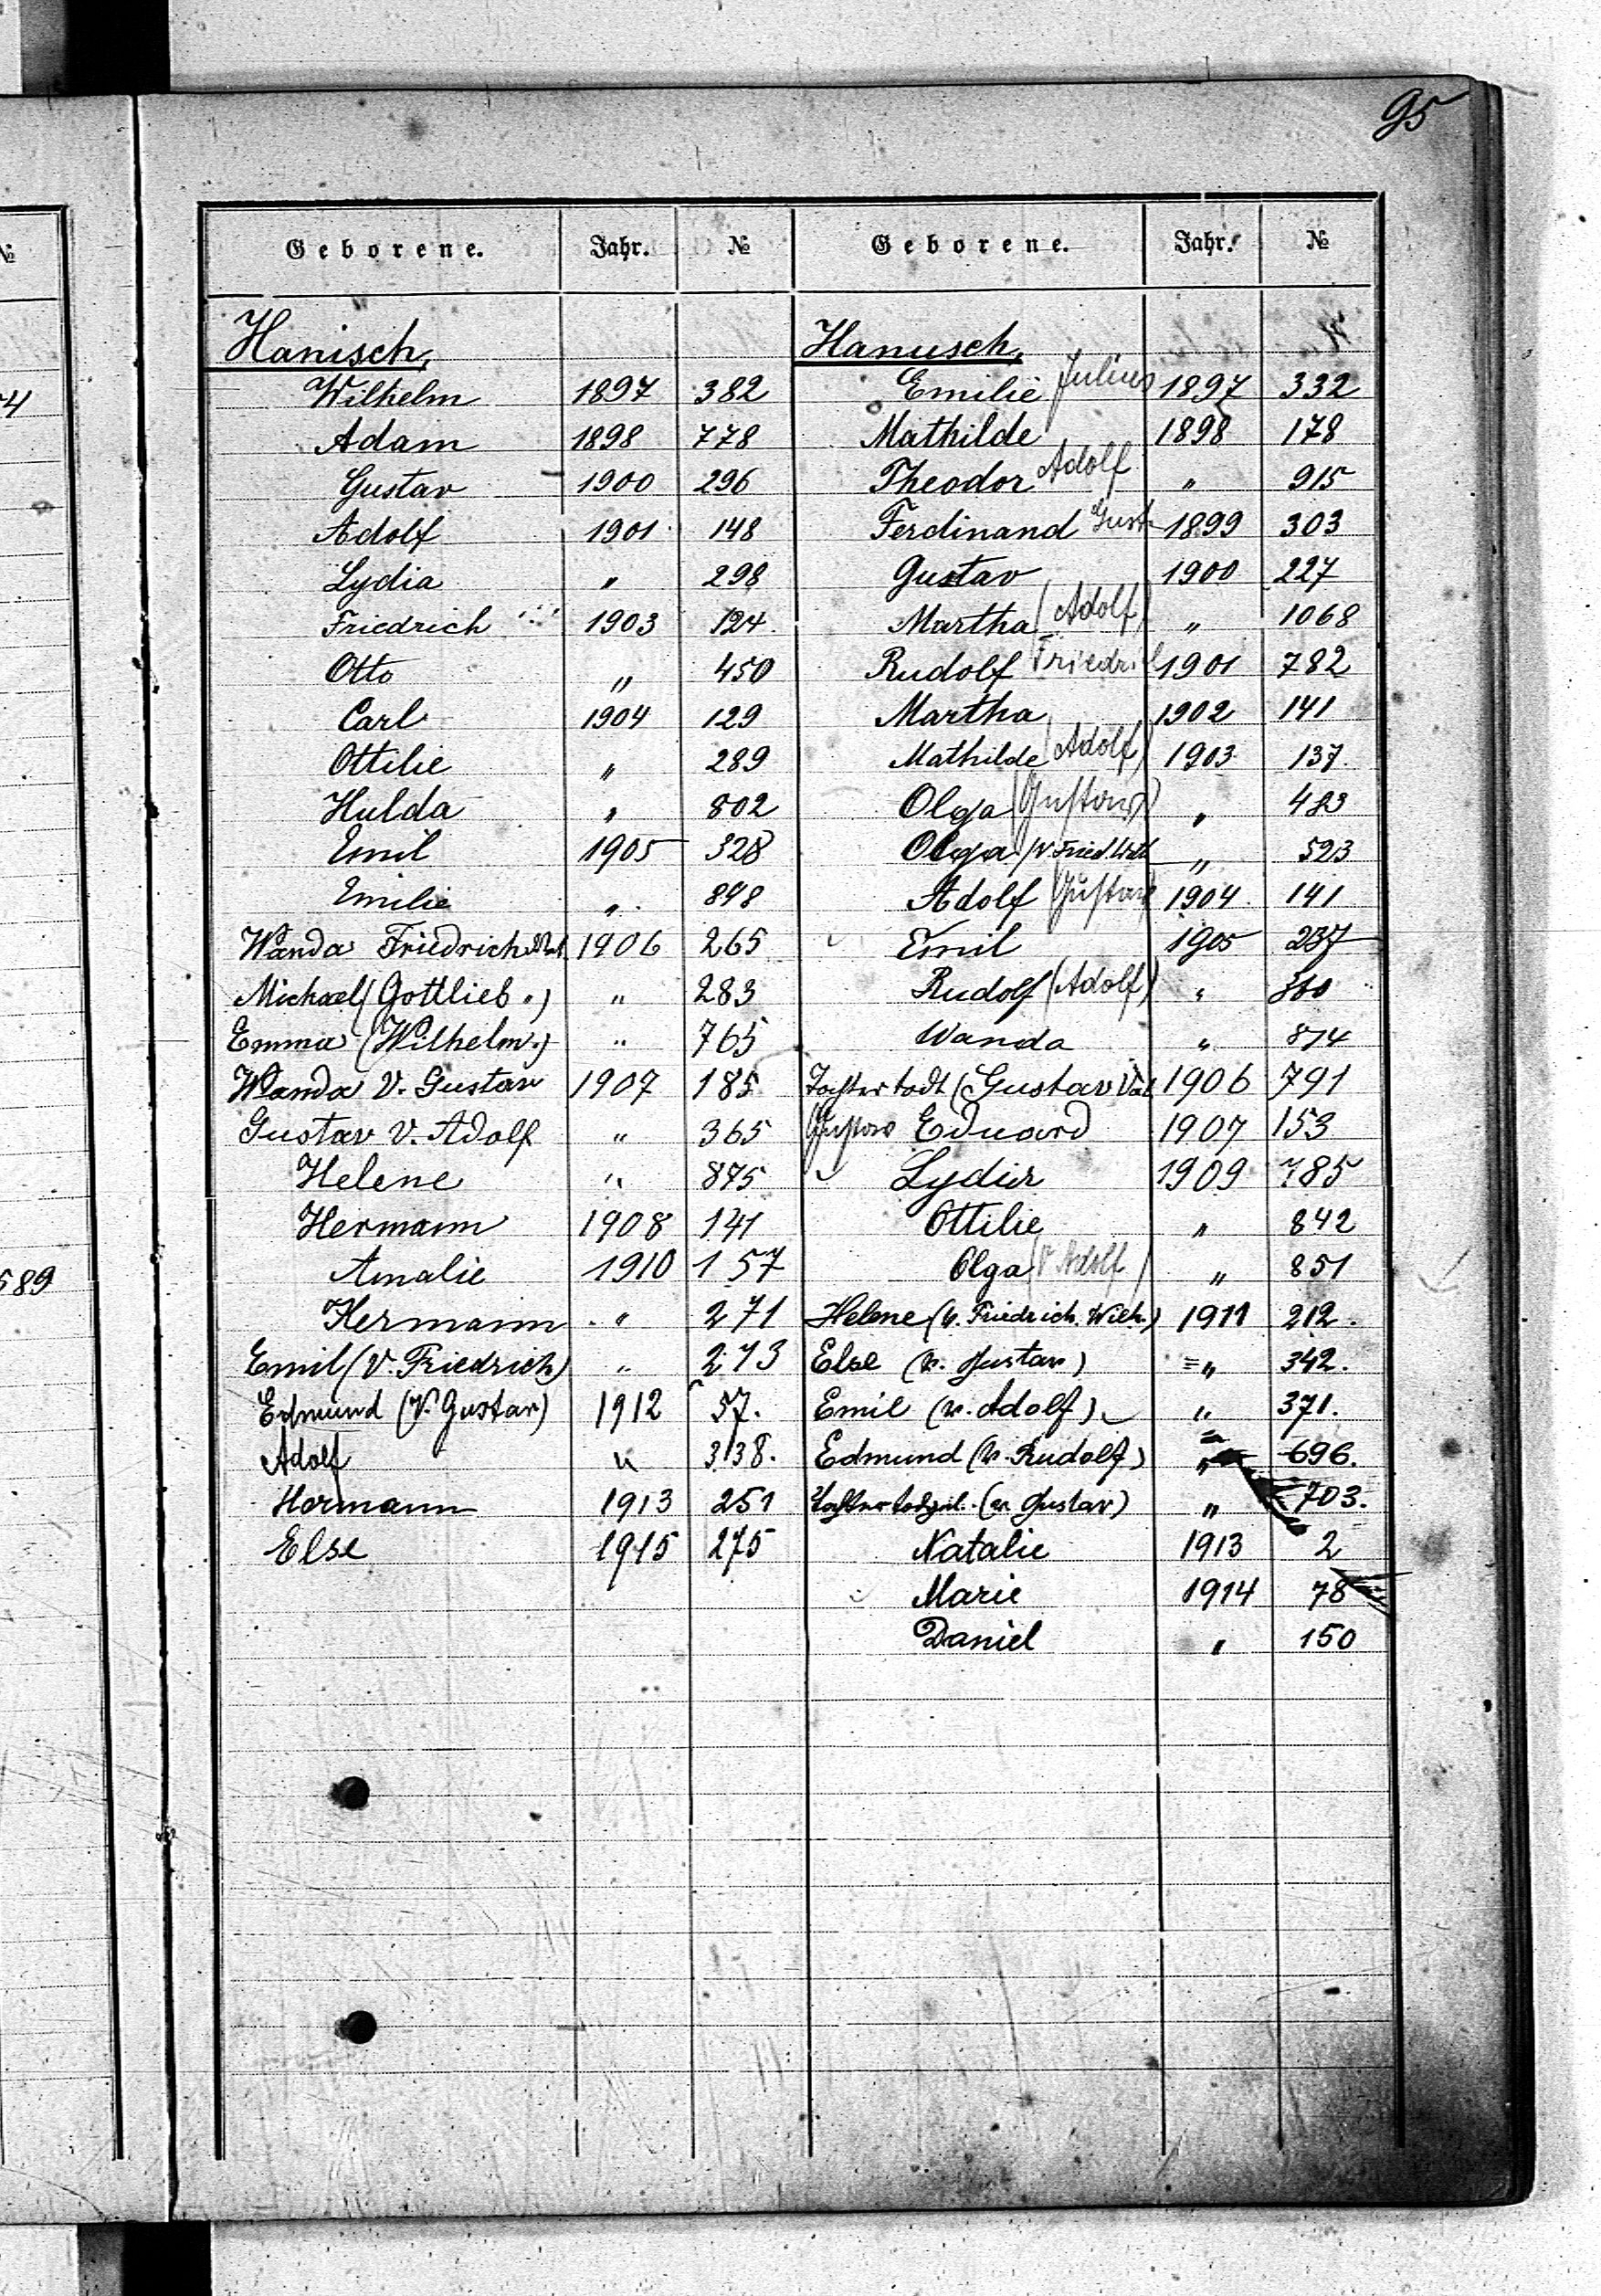 95
№
4
589
Geborene. Jahr. №
Hanisch,
Wilhelm 1897 382
Adam 1898 778
Gustav 1900 296
Adolf 1901 148
Lydia " 298
Friedrich 1903 124.
Otto " 450
Carl 1904 129
Ottilie " 289
Hulda " 802
Emil 1905 328
Emilie " 898
Wanda Friedrich 1906 265
Michael (Gottlieb ") " 283
Emma (Wilhelm.) " 765
Wanda V. Gustav 1907 185
Gustav V. Adolf " 365
Helene " 875
Hermann 1908 141
Amalie 1910 157
Hermann " 271
Emil (V. Friedrich) " 273
Edmund (V. Gustav) 1912 57.
Adolf " 338.
Hermann 1913 251
Else 1915 275
Geborene. Jahr. №
Hanusch,
Emilie Julius 1897 332
Mathilde 1898 178
Theodor Adolf " 915
Ferdinand Gust 1899 303
Gustav 1900 227
Martha (Adolf) " 1068
Rudolf Friedrich 1901 782
Martha 1902 141
Mathilde (Adolf) 1903 137.
Olga (Gustav) " 483
Olga (v Fried. Wilh " 523
Adolf (Gustav) 1904 141
Emil 1905 237
Rudolf (Adolf) "
Wanda " 874
Tochter todt (Gustav Vat. 1906 791
Gustav Eduard 1907 153
Lydia 1909 785
Ottilie " 842
Olga (V Adolf) " 851
Helene (v. Friedrich. Wilh.) 1911 212.
Else (v. Gustav) " 342.
Emil (v. Adolf) " 371.
Edmund (v. Rudolf) " 696.
Tochter (v Gustav) " 703.
Natalie 1913 2
Marie 1914 78
Daniel " 150